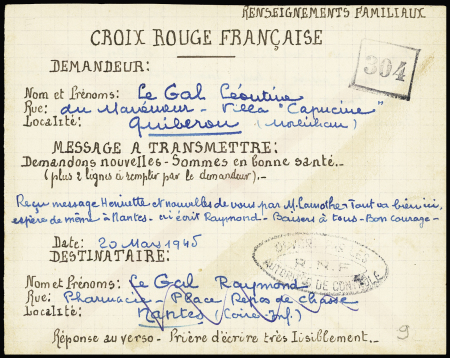 RENSEIGNEMENTS FAMILIAUX
CROIX ROUGE FRANÇAISE
304
DEMANDEUR:
Nom et Prénoms: Le Gal Léontine
Rue: du Manémeur - Villa "Capucine"
Localité: Quiberon (Morbihan)
MESSAGE A TRANSMETTRE:
Demandons nouvelles - Sommes en bonne santé._
(plus 2 lignes à remplir par le demandeur)._
Reçu message Henriette et nouvelles de vous par M. Lamothe - Tout va bien ici,
espère de même à Nantes - écrit Raymond - Baisers à tous - Bon courage -
Date: 20 Mars 1945
DESTINATAIRE:
AUTORITÉS DE CONTRÔLE
Nom et Prénoms: Le Gal Raymond
Rue: Pharmacie - Place Repos de Chasse
Localité: Nantes (Loire Inf.)
Réponse au verso - Prière d'écrire très lisiblement._
9